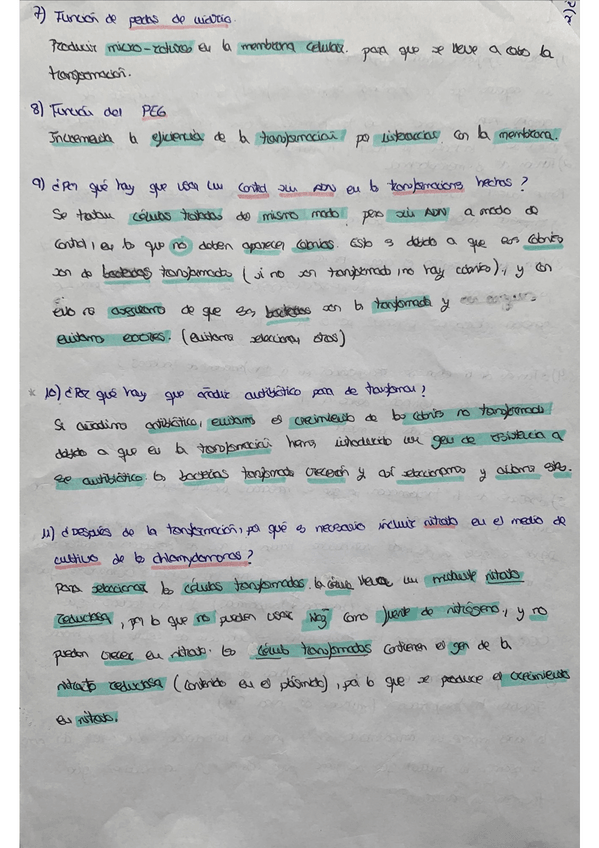 7) Función de perlas de vidrio.
Producir micro-roturas en la membrana celular. para que se lleve a cabo la
transformación.
8) Función del PEG
Incrementa la eficiencia de la transformación por interacción con la membrana.
9) ¿Por qué hay que usar un control sin ADN en las transformaciones hechas?
Se tratan células tratadas del mismo modo pero sin ADN a modo de
control, en lo que no deben aparecer colonias. Esto es debido a que esas colonias
son de bacterias transformadas (si no son transformadas no hay colonias), y con
ello nos aseguramos de que esas bacterias son las transformadas y
evitamos errores. (evitamos seleccionar otras)
* 10) ¿Por qué hay que añadir antibiótico para de transformar?
Si añadimos antibiótico, evitamos el crecimiento de las colonias no transformadas
debido a que en la transformación hemos introducido un gen de resistencia a
ese antibiótico. las bacterias transformadas crecerán y así seleccionamos y
11) ¿Después de la transformación, por qué es necesario incluir nitrato en el medio de
cultivo de las chlamydomonas?
Para seleccionar las células transformadas. la célula lleva un mutante nitrato
reductasa, por lo que no pueden usar NO₃⁻ como fuente de nitrógeno, y no
pueden crecer en nitrato. Las células transformadas contienen el gen de la
nitrato reductasa (contenido en el plásmido), por lo que se produce el crecimiento
en nitrato.